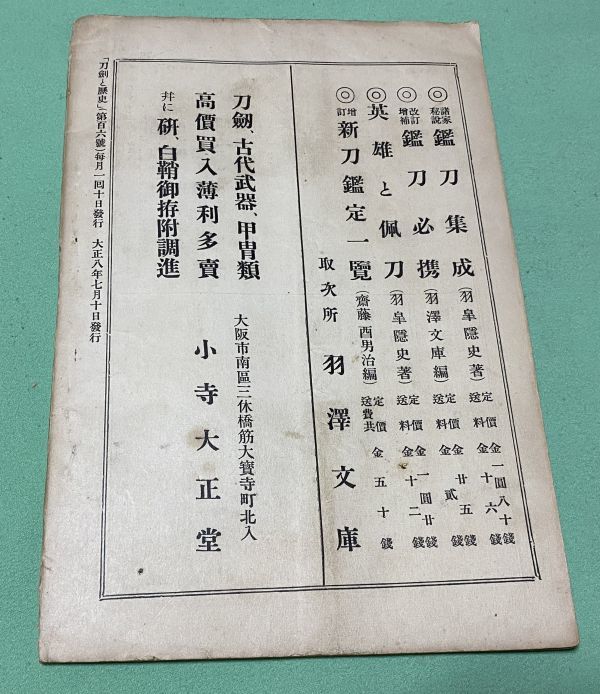 ◎諸家秘説 鑑刀集成 (羽皐隱史著) 定價金一圓八十錢 送料金十六錢
◎改訂增補 鑑刀必携 (羽澤文庫編) 定價金廿五錢 送料金貳錢
◎英雄と佩刀 (羽皐隱史著) 定價金一圓廿錢 送料金十二錢
◎增訂 新刀鑑定一覽 (齋藤酉男治編) 定價送費共 金五十錢
取次所 羽澤文庫
刀劔、古代武器、甲冑類
高價買入薄利多賣
并に 硏、白鞘御拵附調進
大阪市南區三休橋筋大寳寺町北入
小寺大正堂
「刀劍と歷史」(第百六號)每月一回十日發行 大正八年七月十日發行